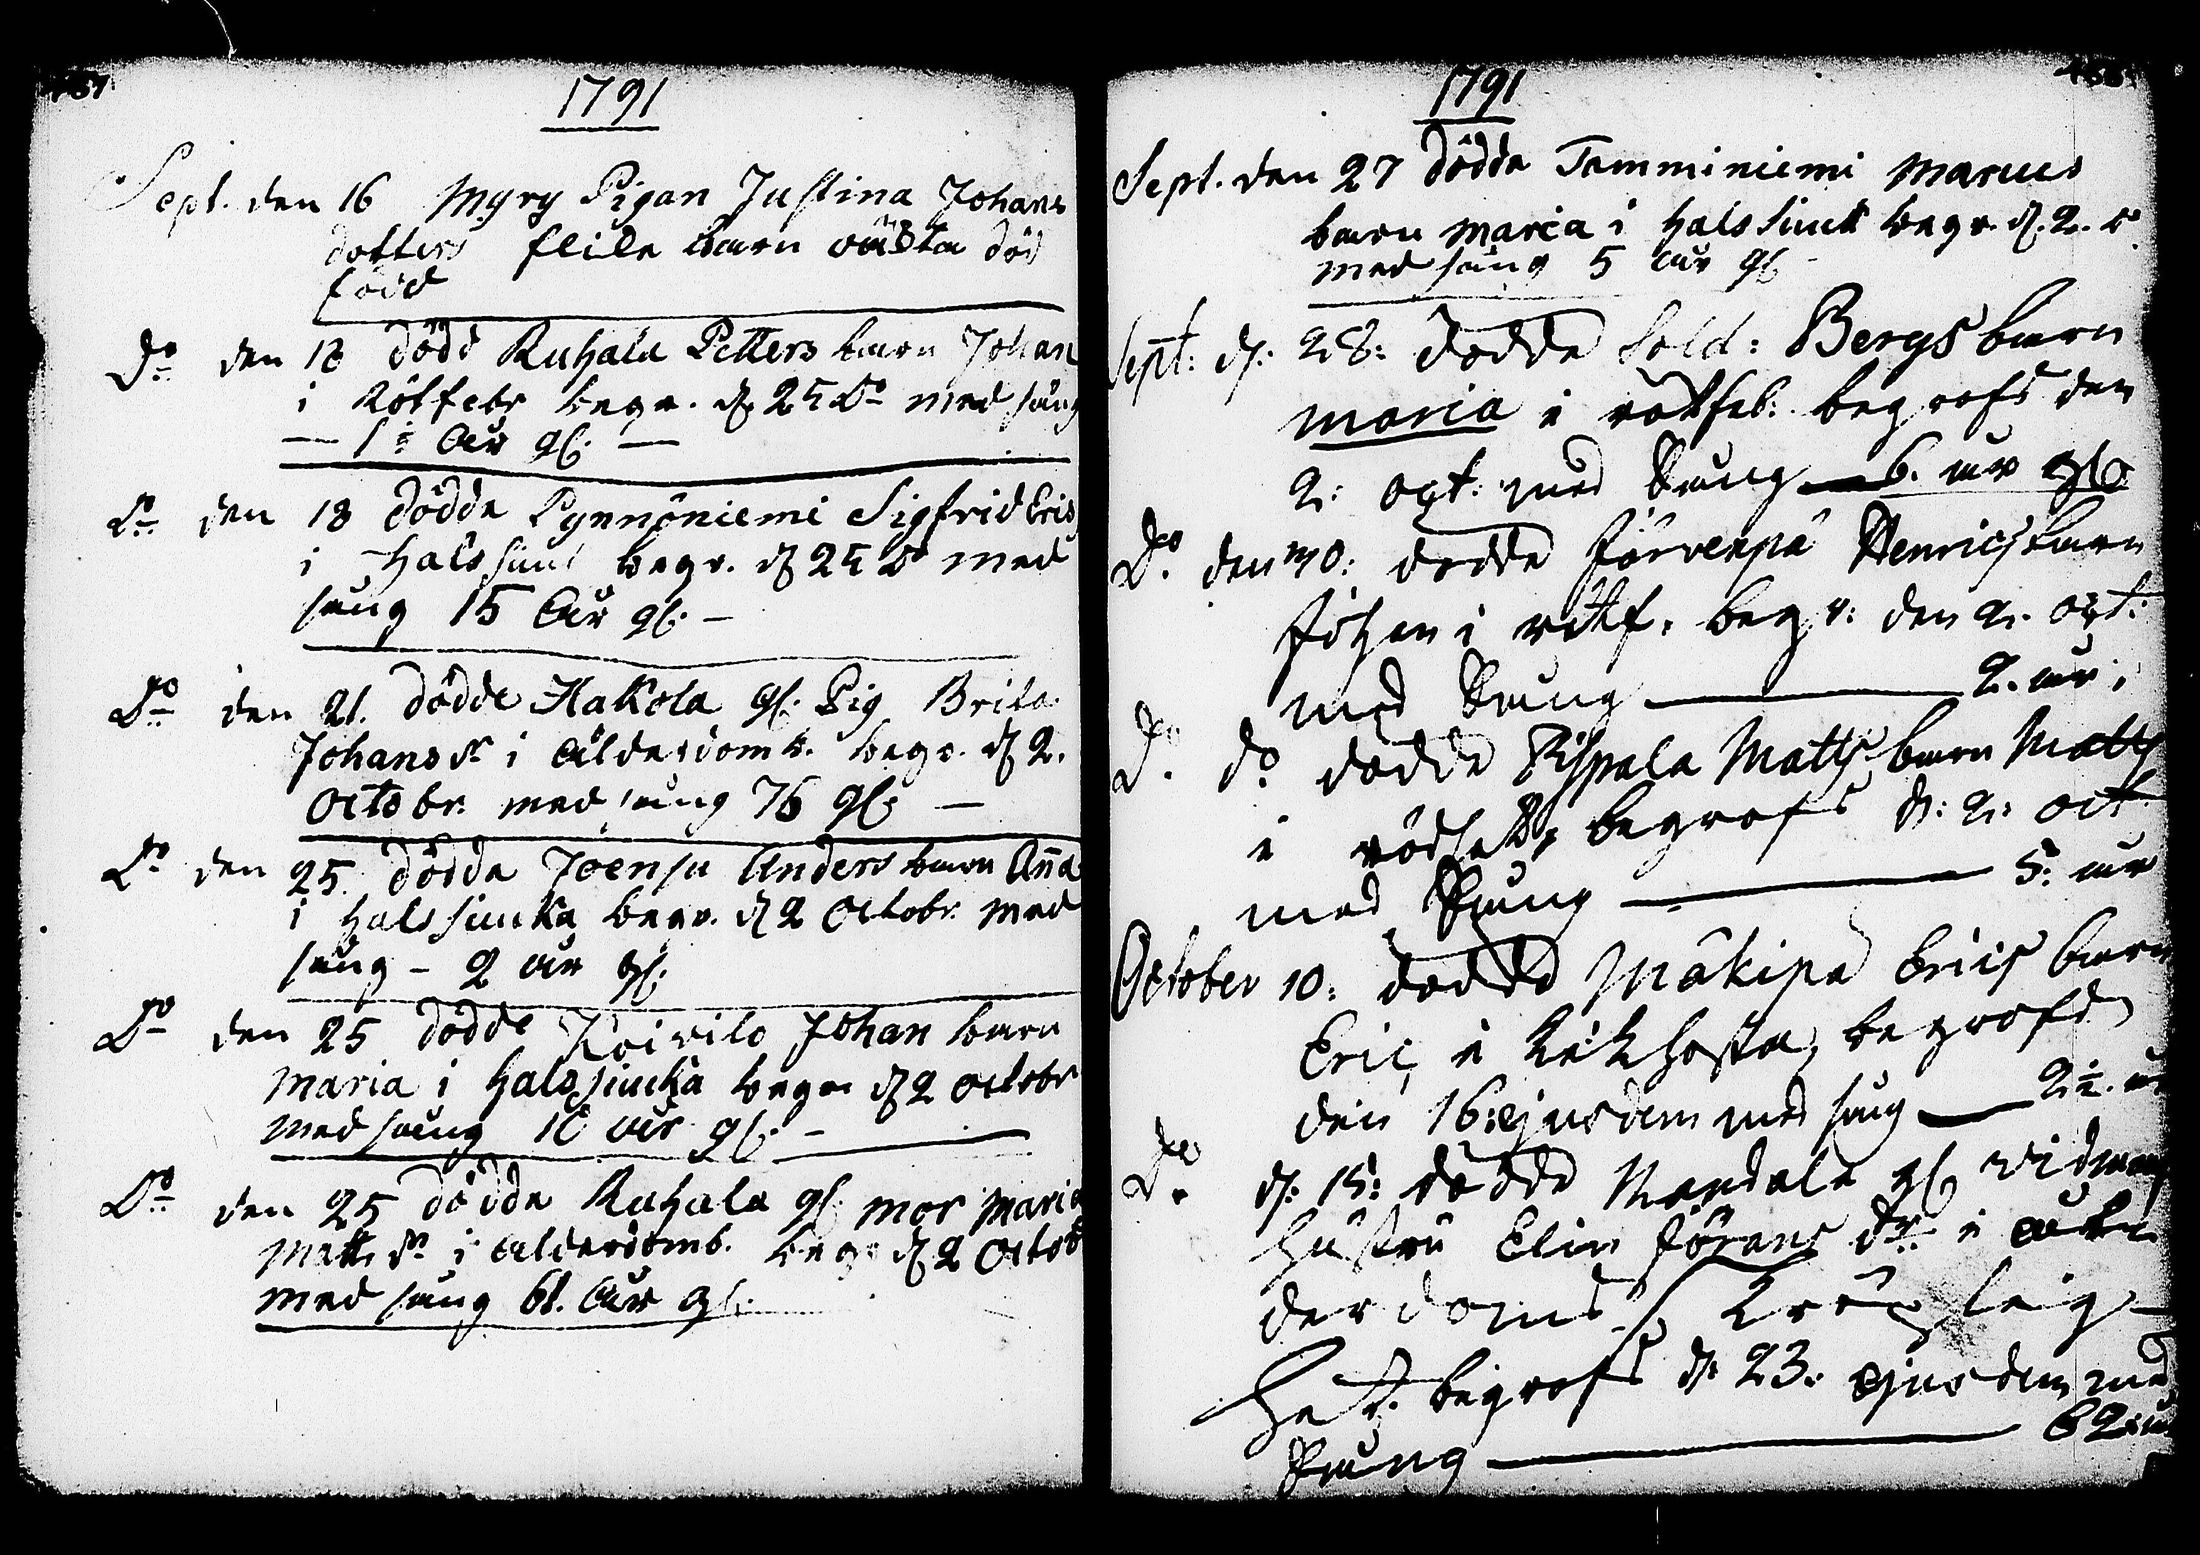 1791
Sept. den 16 Myry Pigan Justina Johans
dotters barn död
född
Do den 18 död Ruhala Petters barn Johan
i Rötfebr begr. d. 25 Do med sång
— 1 ½ åår gl. —
Do den 18 dödde Pynnöniemi Sigfrid Erics
i Halssiuk begr. d 25 Do med
sång 15 åår gl. —
Do den 21. dödde Hakola gl. Pig Brita
Johans dr i ålderdomb. begr. d 2.
Octobr. med sång 76 gl. —
Do den 25 dödde Joensu Anders barn Aña
i halssiucka begr. d 2 Octobr. med
sång - 2 åår gl.
Do den 25 dödde Koivilo Johan barn
Maria i halssiucka begr d 2 Octobr
med sång åår gl. —
Do den 25 dödde Ruhala gl. mor Maria
Matts dr i ålderdomb. begr d 2 Octob
med sång 61. åår gl.
1791
Sept. den 27 dödde Tamminiemi Marcus
barn Maria i halssiuck begr. d. 2. O.
med sång 5 åår gl.
Sept: d: 28: dödde Sold: Bergs barn
Maria i rötfeb: begrofs den
2: oct: med Sång — 6. år gl
Do den 30: dödde Järvenpä Henrics barn
Johan i rötf. begr: den 2. oct:
med Sång — 2. år;
Do do dödde Pispala Matts barn Matts
i begrofs d: 2: oct
med Sång — 5: år
October 10: dödde Mäkipä Erics barn
Eric i Kikhosta, begrofs
den 16: ejusdem med sång — 2½. år
Do d: 15: dödde gl
hustru Elin Jörans dr: i ål
derdoms
het. begrofs d: 23. ejusdem med
Sång — 62: år